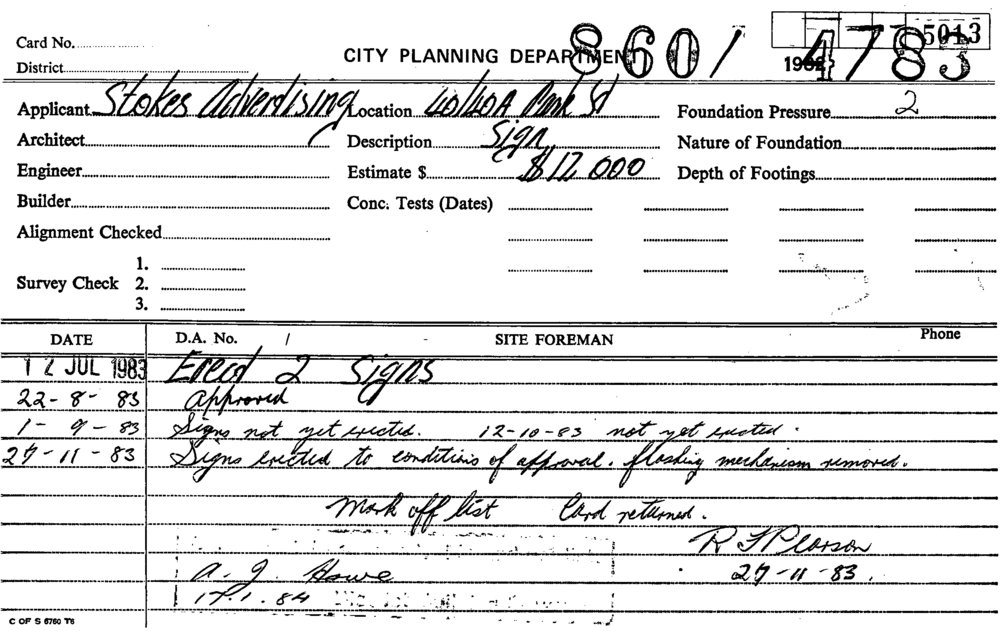 5013
Card No.
CITY PLANNING DEPARTMENT 8601 4783
District
Applicant Stokes Advertising Location 40/40A Park St Foundation Pressure 2
Architect Description Sign Nature of Foundation
Engineer Estimate $ $12 000 Depth of Footings
Builder Conc. Tests (Dates)
Alignment Checked
1.
Survey Check 2.
3.
DATE D.A. No. / SITE FOREMAN Phone
12 JUL 1983 Erect 2 Signs
22-8-83 Approved
1-9-83 Signs not yet erected. 12-10-83 not yet erected.
27-11-83 Signs erected to conditions of approval. flashing mechanism removed.
Mark off list Card returned.
R F Pearson
A. J. Howe 27-11-83.
C OF S 6760 T6